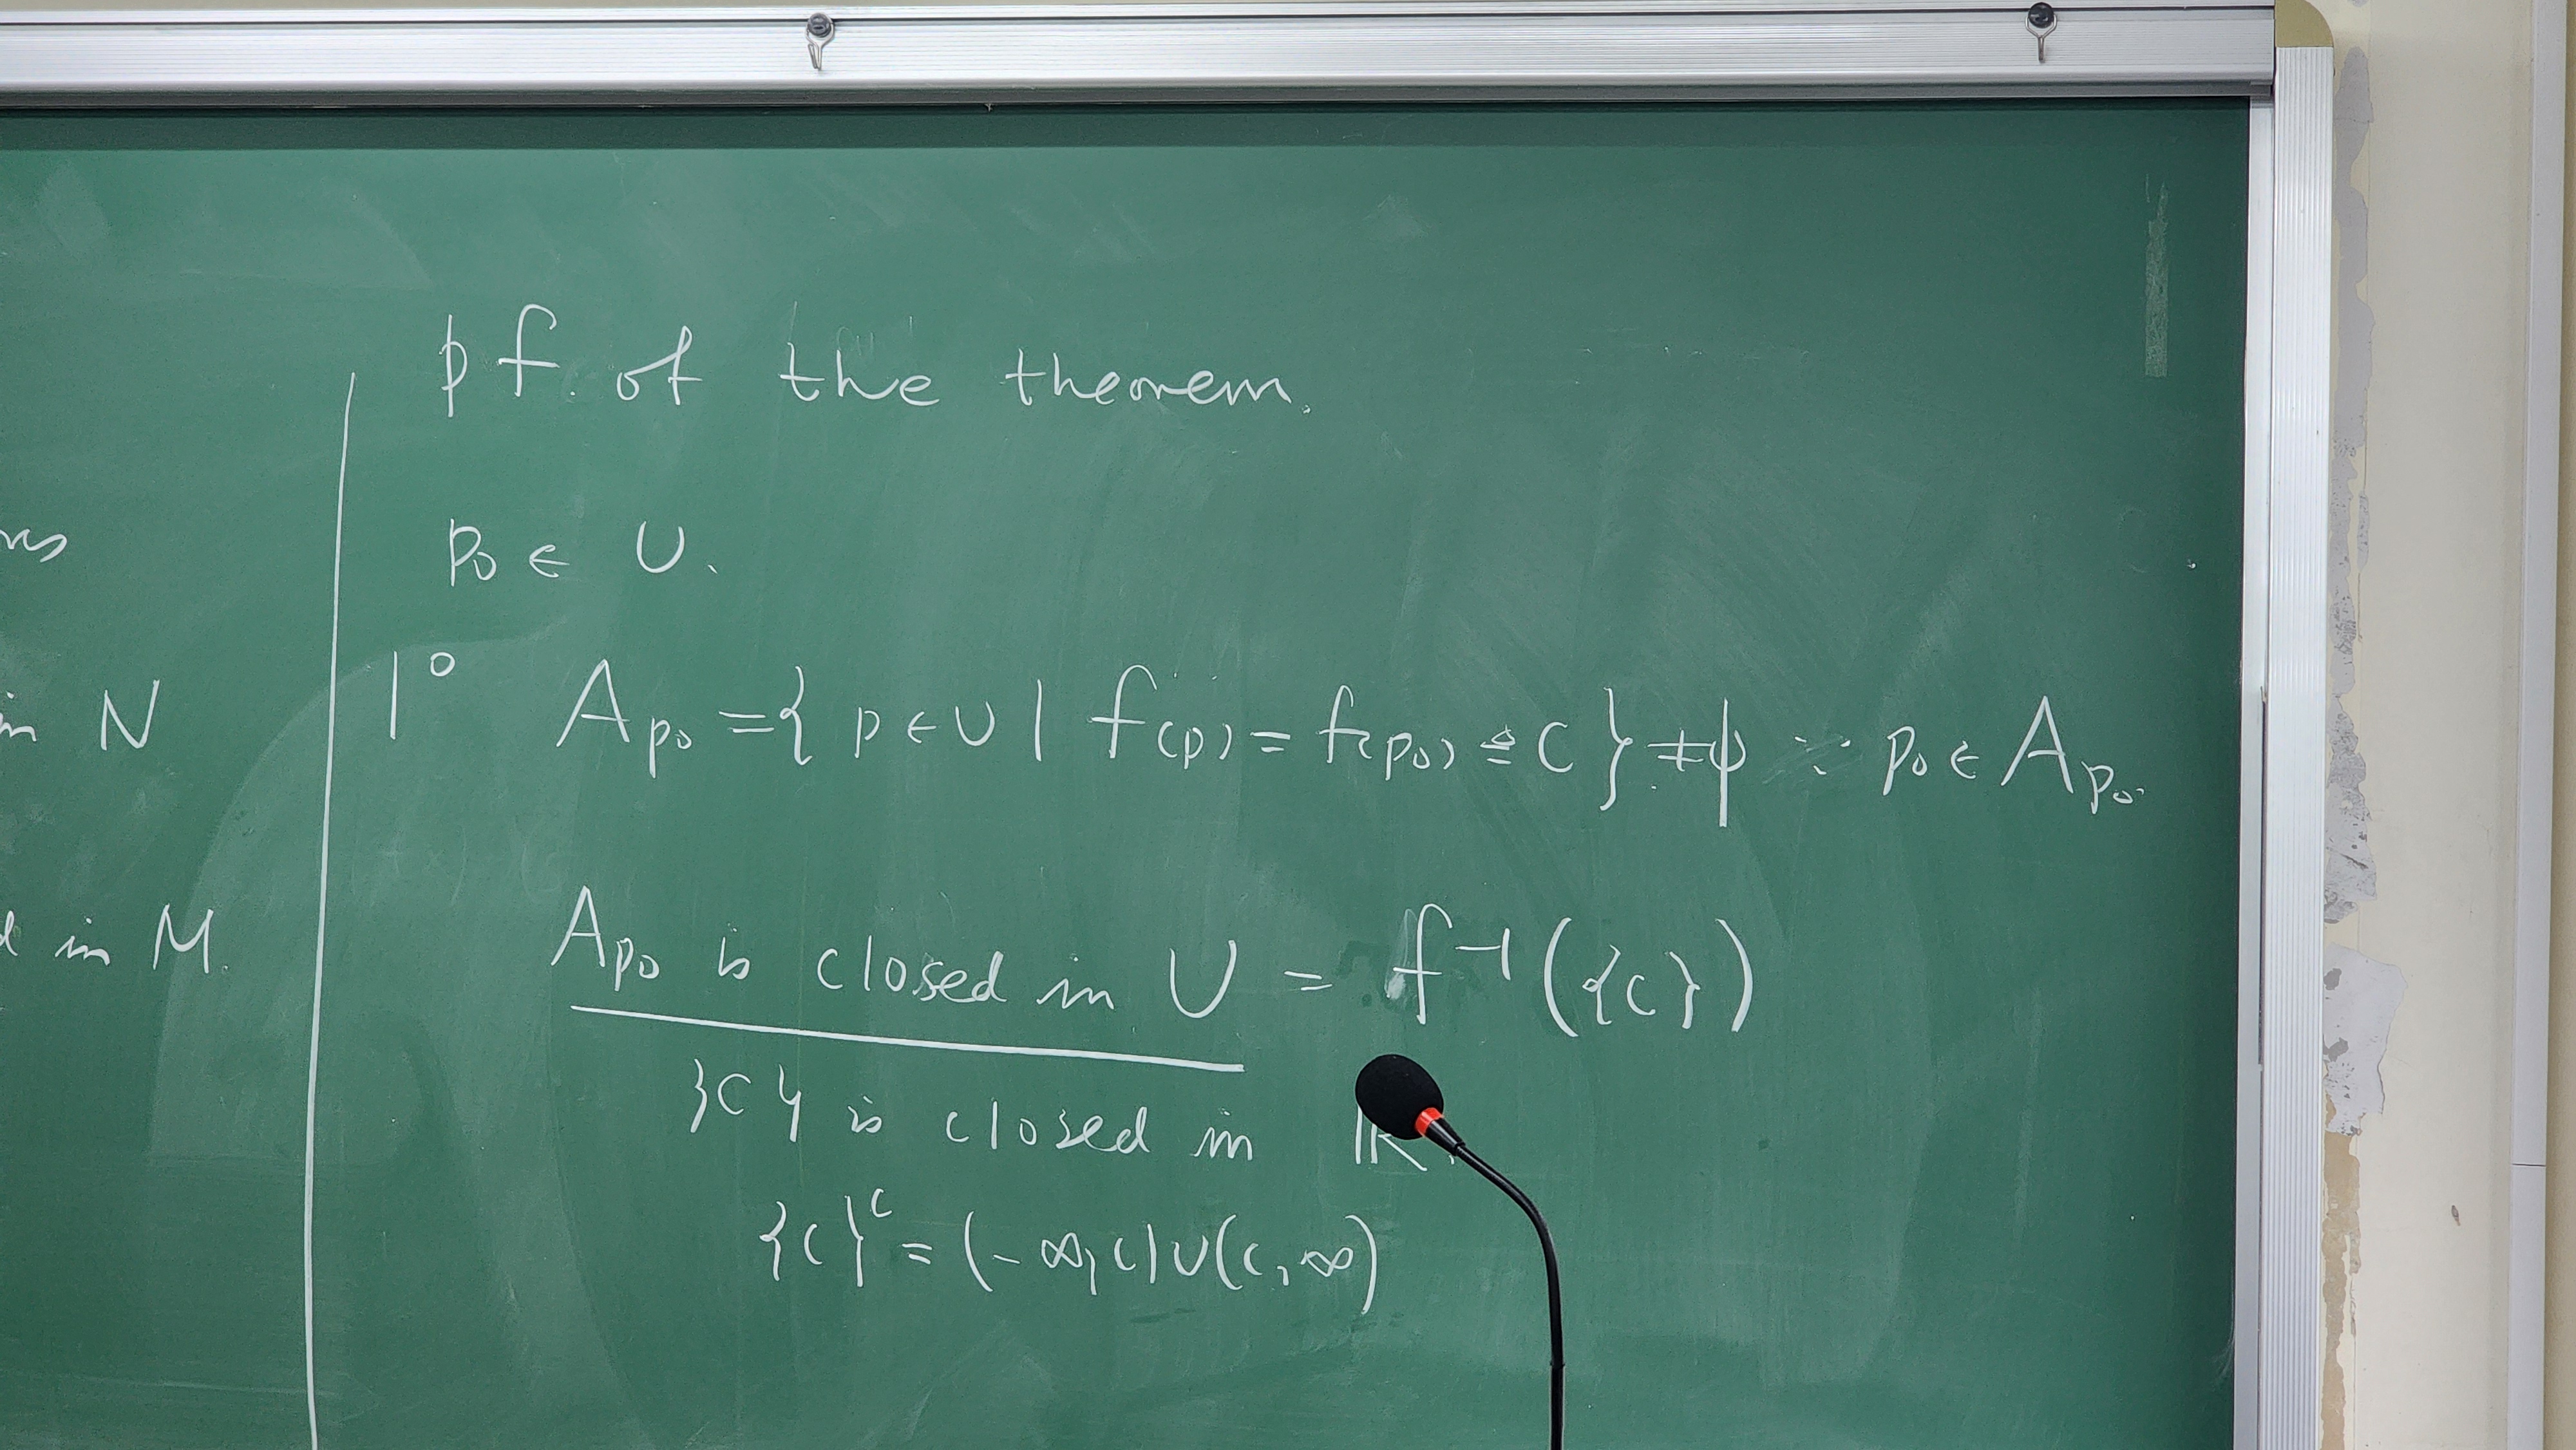 pf. of the theorem.
p₀ ∈ U.
1° A_{p₀} = { p ∈ U | f(p) = f(p₀) ≜ C } ≠ ϕ ∵ p₀ ∈ A_{p₀}.
in N
A_{p₀} is closed in U = f⁻¹({c})
in M.
{C} is closed in ℝ.
{c}ᶜ = (-∞, c) ∪ (c, ∞)